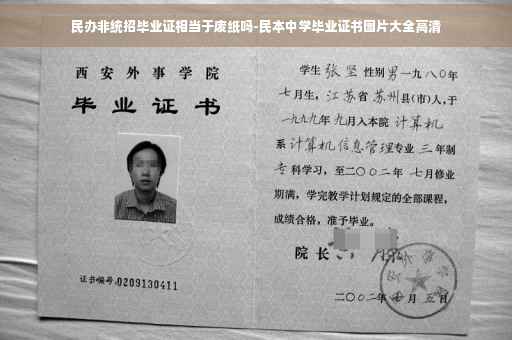 民办非统招毕业证相当于废纸吗-民本中学毕业证书图片大全高清
西安外事学院
毕业证书
证书编号:0209130411
学生 张坚 性别 男 一九八〇年
七月生，江苏省 苏州县(市)人,于
一九九九年 九月入本院 计算机
系 计算机信息管理专业 三 年制
专 科学习，至二〇〇二年 七月修业
期满，学完教学计划规定的全部课程，
成绩合格，准予毕业。
院长
二〇〇二年 月 五日